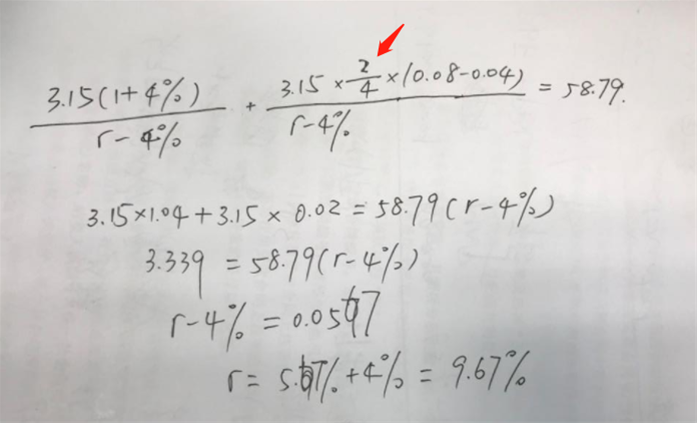 3.15(1+4%)/(r-4%) + 3.15×2/4×(0.08-0.04)/(r-4%) = 58.79.
3.15×1.04+3.15×0.02=58.79(r-4%)
3.339=58.79(r-4%)
r-4%=0.0567
r=5.67%+4%=9.67%